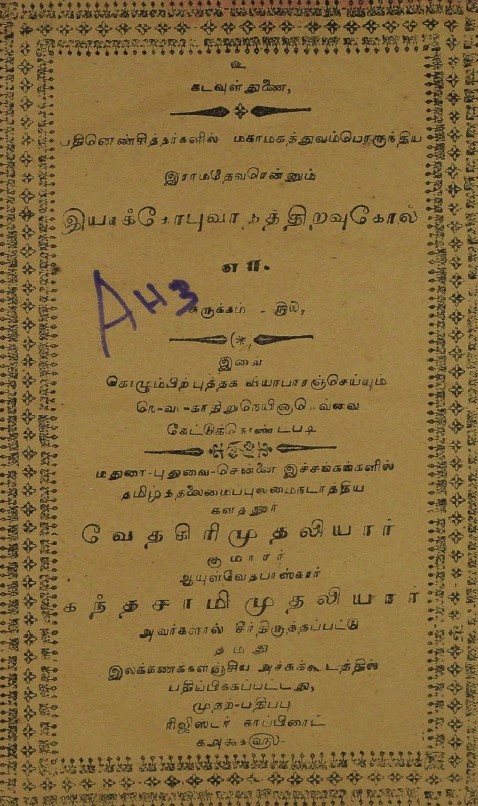 உ
கடவுள்துணை,
பதினெண்சித்தர்களில் மகாமகத்துவம்பொருந்திய
இராமதேவரென்னும்
இயாக்கோபுவாதத்திறவுகோல்
எ௱.
AH3
சுருக்கம் -
இவை
கொழும்பிற்புத்தக வியாபாரஞ்செய்யும்
கேட்டுக்கொண்டபடி
மதுரை-புதுவை-சென்னை இச்சங்கங்களில்
தமிழ்த்தலைமைப்புலமைநடாத்திய
களத்தூர்
வேதகிரிமுதலியார்
குமாரர்
ஆயுள்வேதபாஸ்கரர்
கந்தசாமிமுதலியார்
அவர்களால் சீர்திருத்தப்பட்டு
தமது
இலக்கணக்களஞ்சிய அச்சுக்கூடத்தில்
பதிப்பிக்கப்பட்டது,
முதற்-பதிப்பு
ரிஜிஸ்டர் காப்பிரைட்